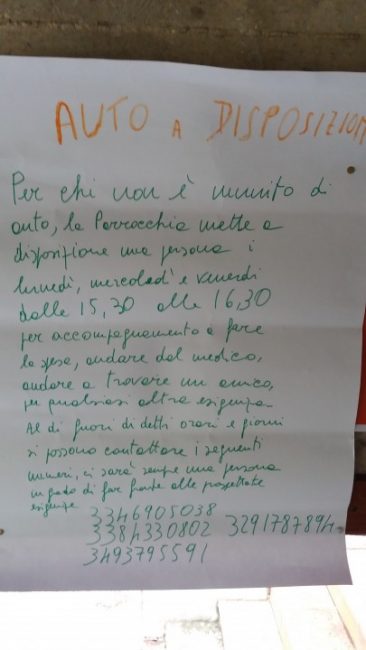 AUTO A DISPOSIZION
Per chi non è munito di
auto, la Parrocchia mette a
disposizione una persona i
lunedì, mercoledì e venerdì
dalle 15,30 alle 16,30
per accompagnamento a fare
la spesa, andare dal medico,
andare a trovare un amico,
per qualsiasi altra esigenza.
Al di fuori di detti orari e giorni
si possono contattare i seguenti
numeri, ci sarà sempre una persona
in grado di far fronte alle prospettate
esigenze
3346905038
3384330802 3291787894
3493795591